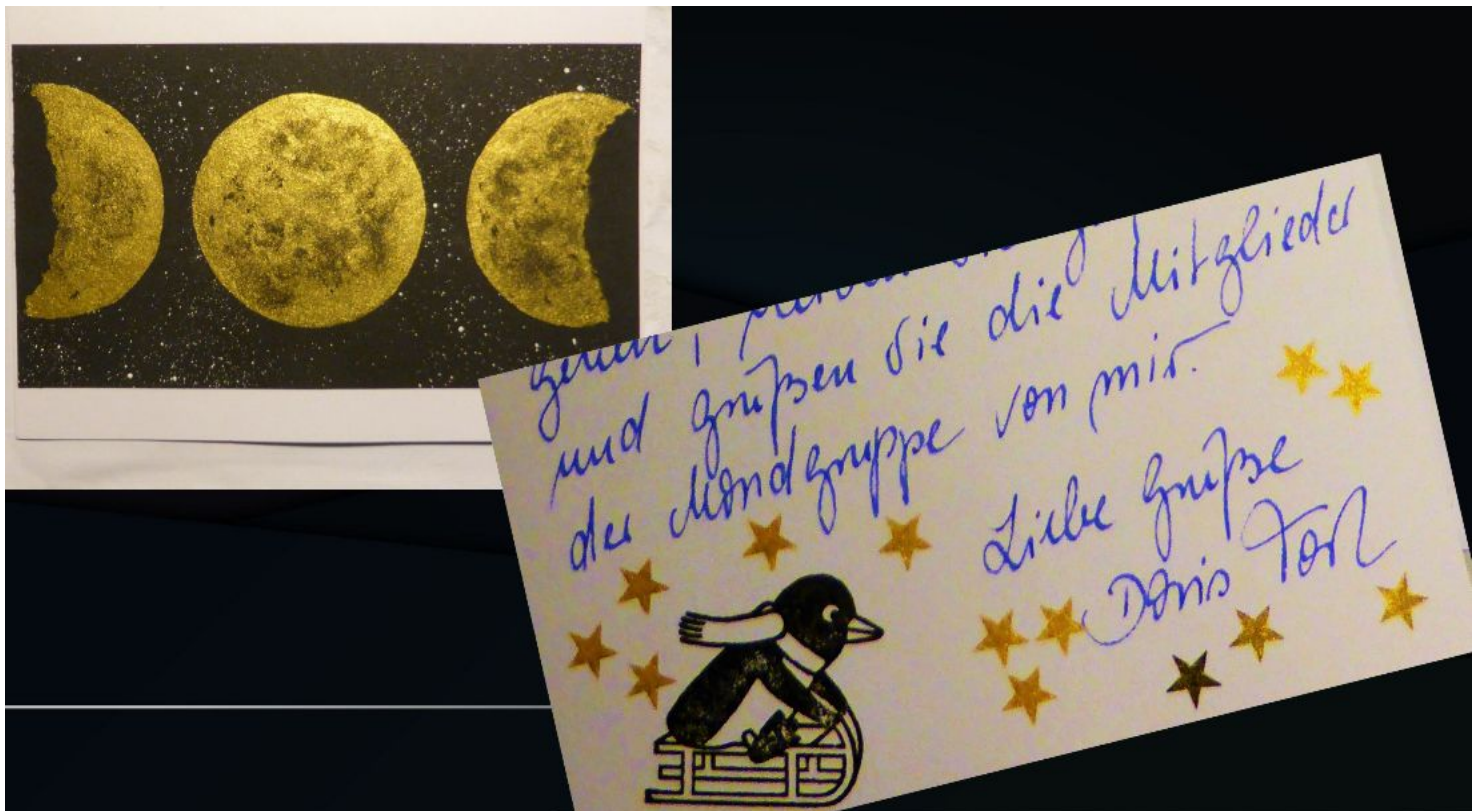 und grüßen Sie die Mitglieder
der Mondgruppe von mir.
Liebe Grüße
Doris